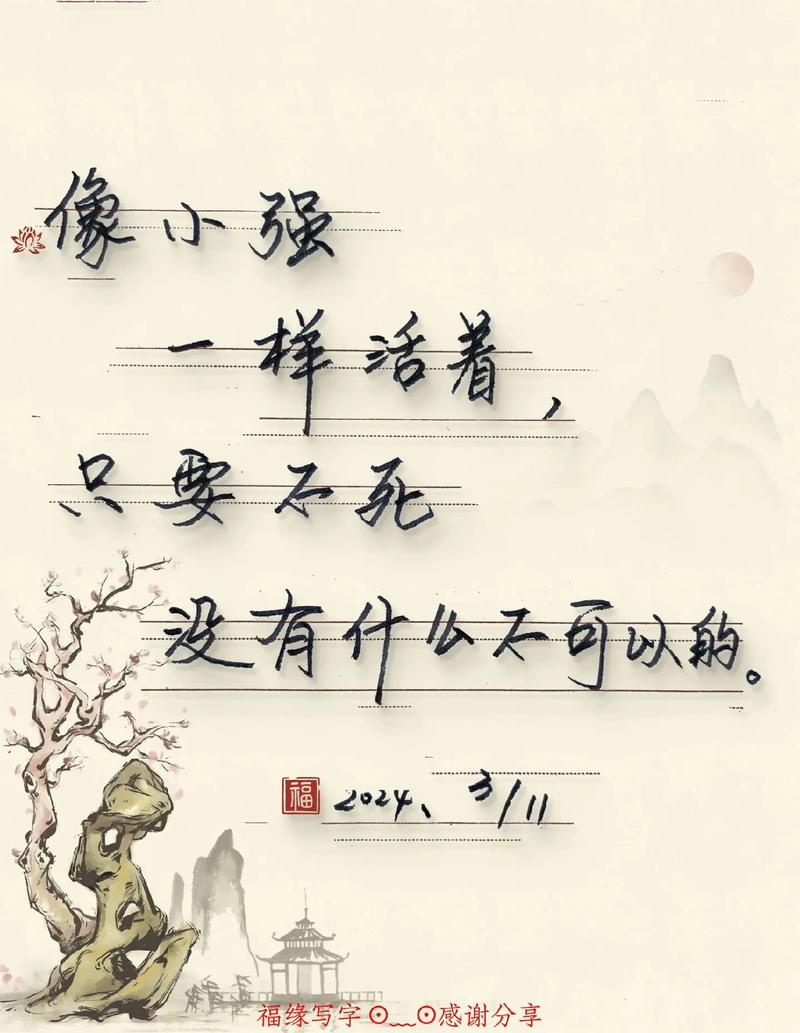 像小强
一样活着，
只要不死
没有什么不可以的。
福 2024、3/11
福缘写字⊙﹏⊙感谢分享